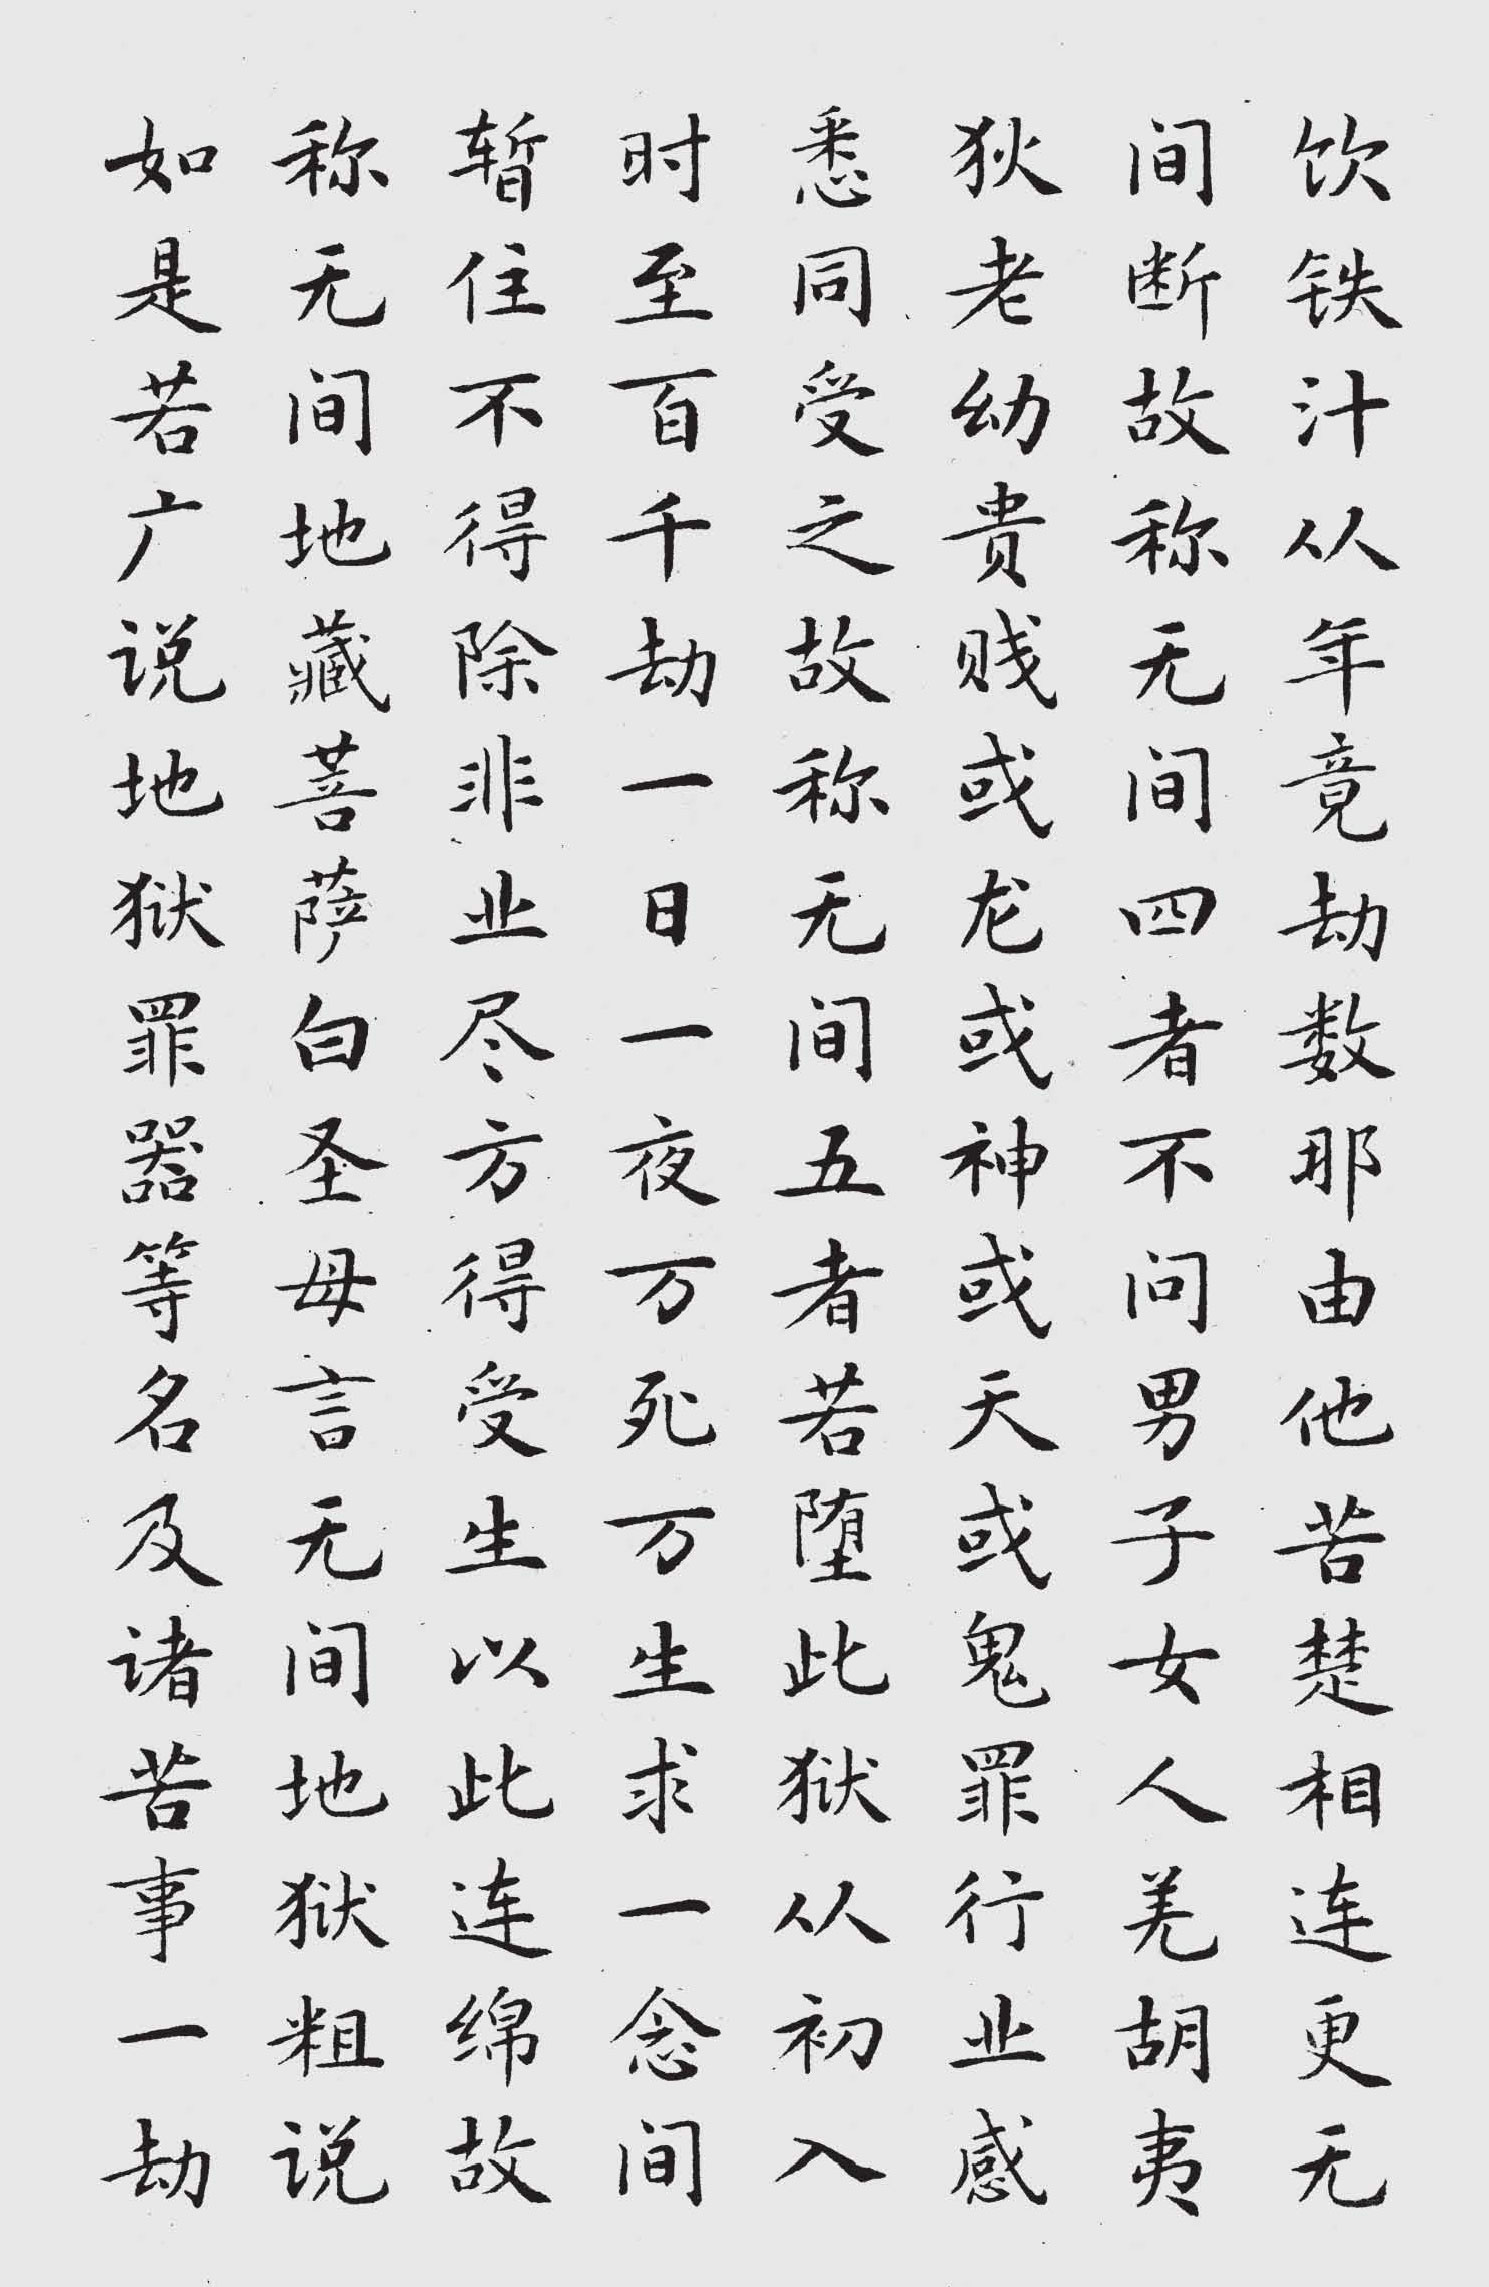 饮铁汁从年竟劫数那由他苦楚相连更无
间断故称无间四者不问男子女人羌胡夷
狄老幼贵贱或龙或神或天或鬼罪行业感
悉同受之故称无间五者若堕此狱从初入
时至百千劫一日一夜万死万生求一念间
暂住不得除非业尽方得受生以此连绵故
称无间地藏菩萨白圣母言无间地狱粗说
如是若广说地狱罪器等名及诸苦事一劫